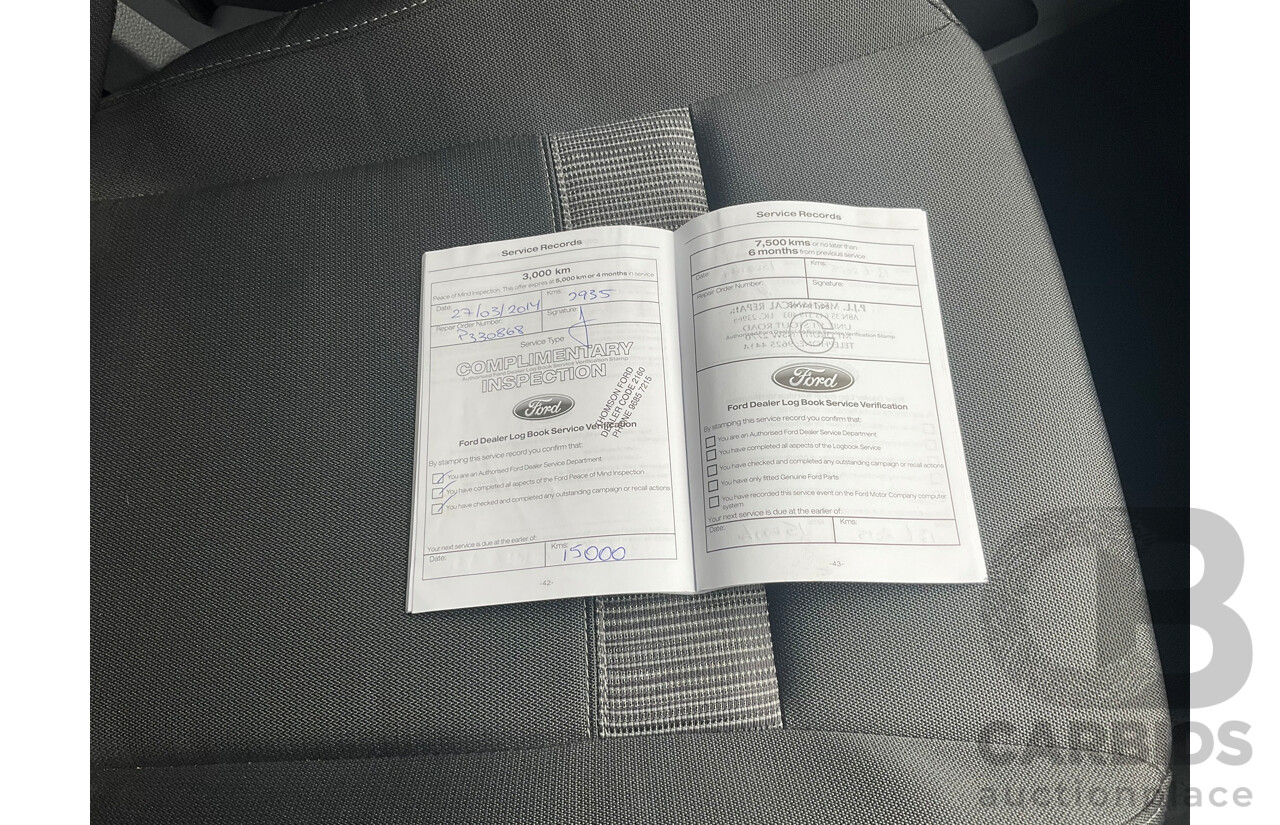 Service Records
3,000 km
Peace of Mind Inspection. This offer expires at 5,000 km or 4 months in service
Date: 27/03/2014
Kms: 2935
Repair Order Number: P330868
Signature:
Service Type
COMPLIMENTARY
Authorised Ford Dealer Log Book Service Verification Stamp
INSPECTION
Ford
THOMSON FORD
DEALER CODE 2160
PHONE 9685 7215
Ford Dealer Log Book Service Verification
By stamping this service record you confirm that:
You are an Authorised Ford Dealer Service Department
You have completed all aspects of the Ford Peace of Mind Inspection
You have checked and completed any outstanding campaign or recall actions
Your next service is due at the earlier of:
Date:
Kms: 15000
-42-
Service Records
7,500 kms or no later than
6 months from previous service
Date:
Kms:
Repair Order Number:
Signature:
Authorised Ford Dealer Log Book Service Verification Stamp
Ford
Ford Dealer Log Book Service Verification
By stamping this service record you confirm that:
You are an Authorised Ford Dealer Service Department
You have completed all aspects of the Logbook Service
You have checked and completed any outstanding campaign or recall actions
You have only fitted Genuine Ford Parts
You have recorded this service event on the Ford Motor Company computer
system
Your next service is due at the earlier of:
Date:
Kms:
-43-
CARBIDS
auctionplace